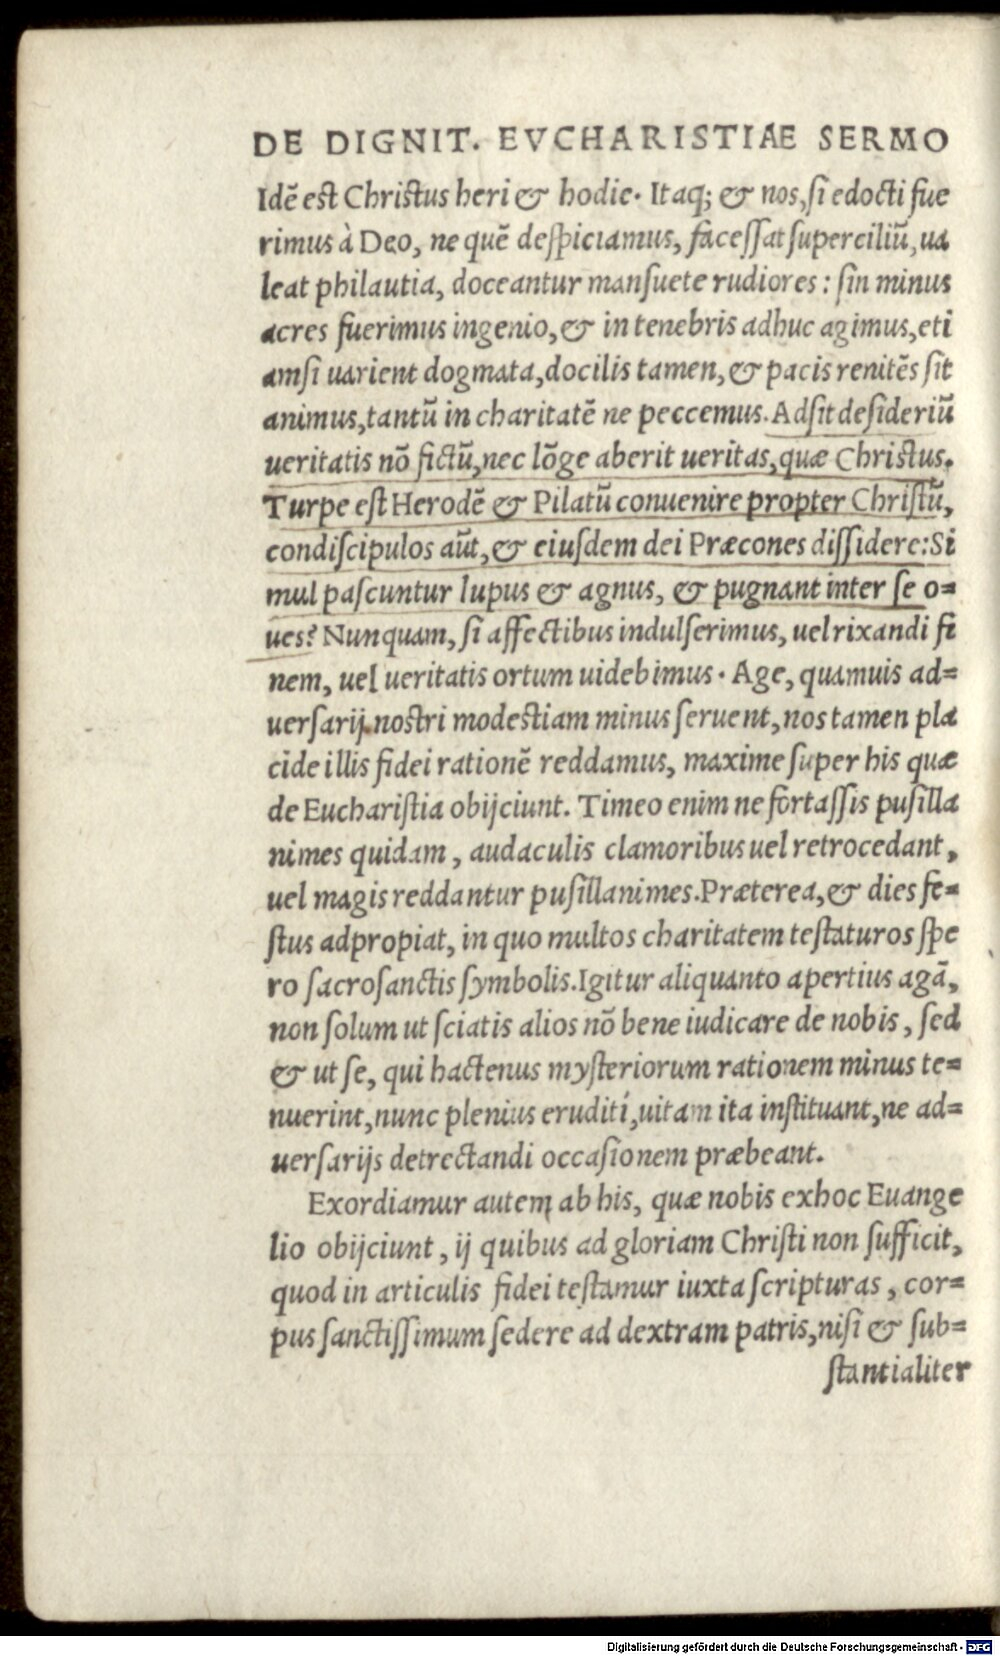 DE DIGNIT. EVCHARISTIAE SERMO
Idē est Christus heri & hodie. Itaq; & nos, si edocti fue
rimus à Deo, ne quē despiciamus, facessat superciliū, ua
leat philautia, doceantur mansuete rudiores: sin minus
acres fuerimus ingenio, & in tenebris adhuc agimus, eti
amsi uarient dogmata, docilis tamen, & pacis renitēs sit
animus, tantū in charitatē ne peccemus. Adsit desideriū
ueritatis nō fictū, nec lōge aberit ueritas, quæ Christus.
Turpe est Herodē & Pilatū conuenire propter Christū,
condiscipulos aūt, & eiusdem dei Præcones dissidere: Si
mul pascuntur lupus & agnus, & pugnant inter se o=
ues? Nunquam, si affectibus indulserimus, uel rixandi fi
nem, uel ueritatis ortum uidebimus. Age, quamuis ad=
uersarij nostri modestiam minus seruent, nos tamen pla
cide illis fidei rationē reddamus, maxime super his quæ
de Eucharistia obijciunt. Timeo enim ne fortassis pusilla
nimes quidam, audaculis clamoribus uel retrocedant,
uel magis reddantur pusillanimes. Præterea, & dies fe=
stus adpropiat, in quo multos charitatem testaturos spe
ro sacrosanctis symbolis. Igitur aliquanto apertius agā,
non solum ut sciatis alios nō bene iudicare de nobis, sed
& ut se, qui hactenus mysteriorum rationem minus te=
nuerint, nunc plenius eruditi, uitam ita instituant, ne ad=
uersarijs detrectandi occasionem præbeant.
Exordiamur autem ab his, quæ nobis ex hoc Euange
lio obijciunt, ij quibus ad gloriam Christi non sufficit,
quod in articulis fidei testamur iuxta scripturas, cor=
pus sanctissimum sedere ad dextram patris, nisi & sub=
stantialiter
Digitalisierung gefördert durch die Deutsche Forschungsgemeinschaft - DFG